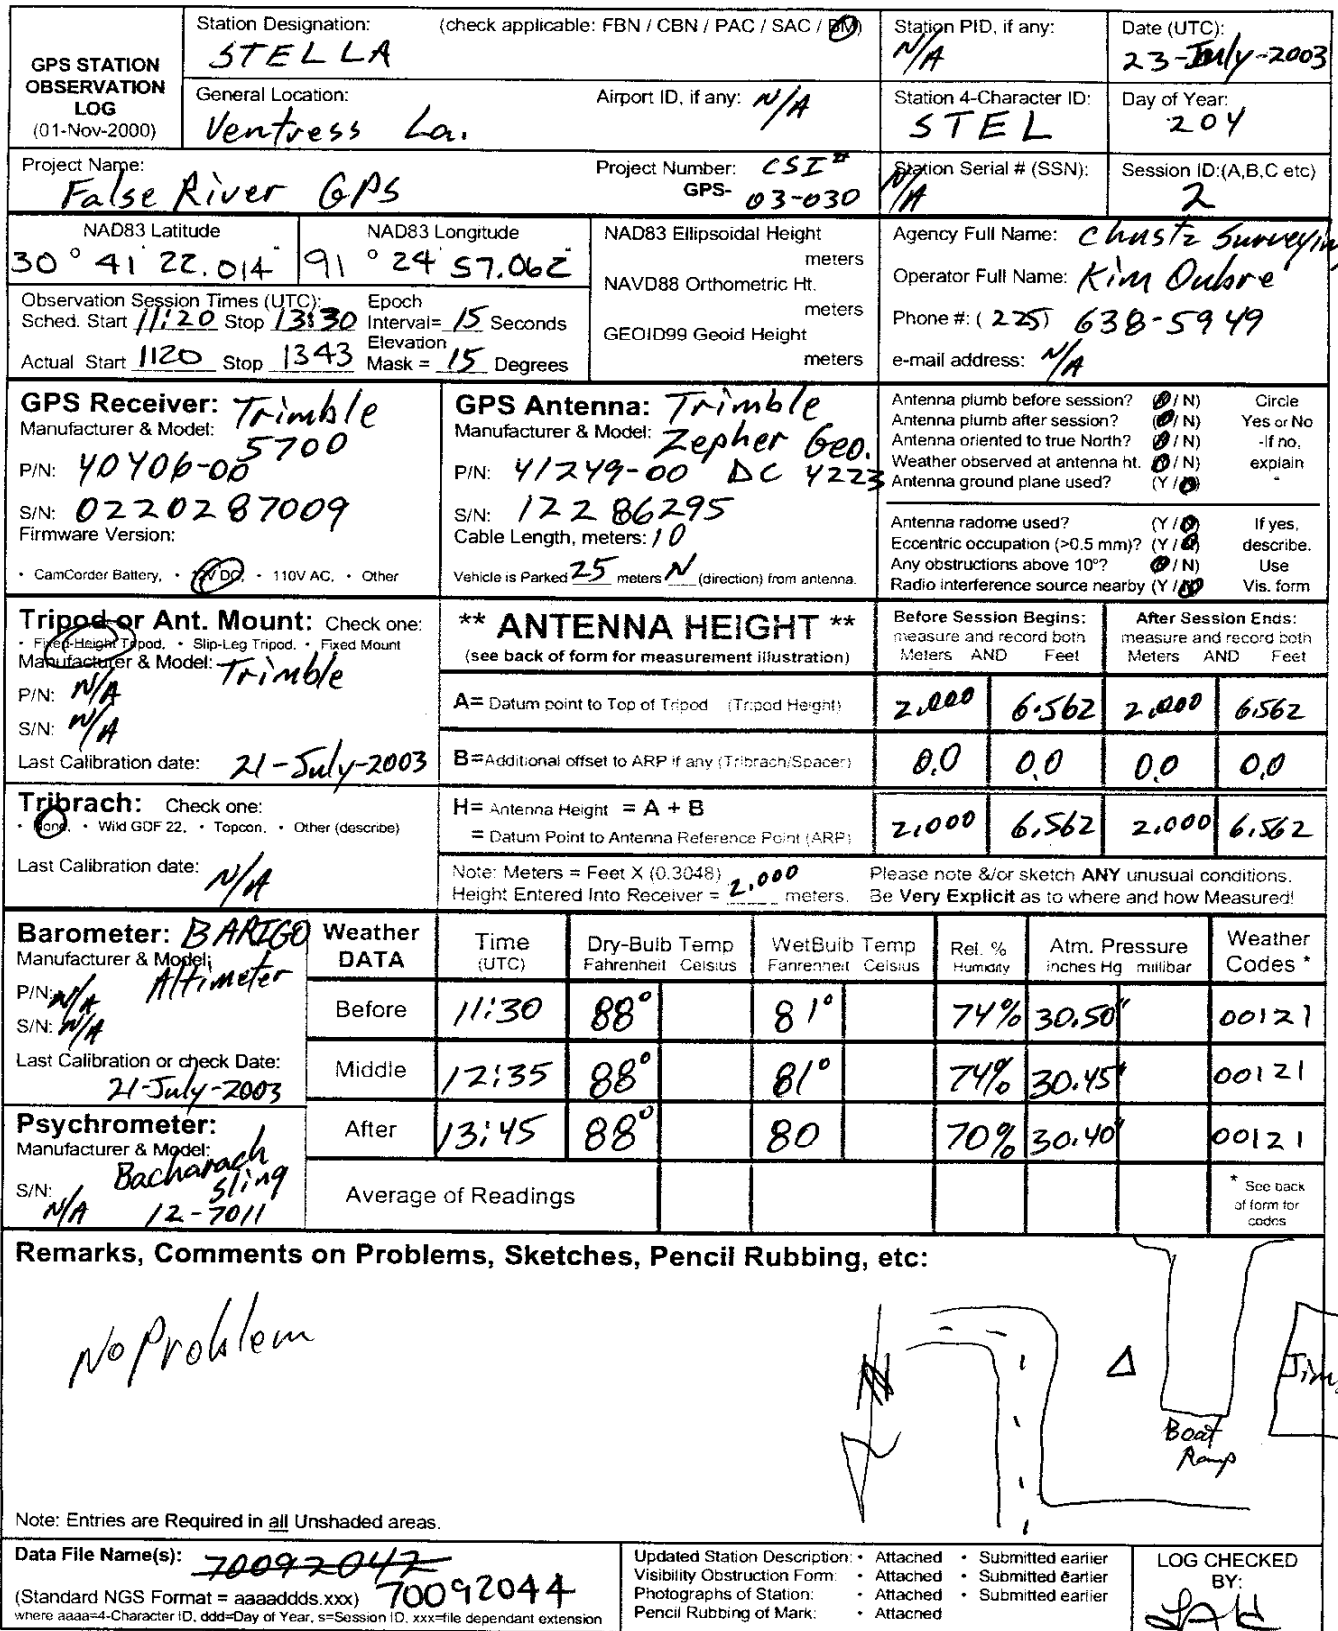 GPS STATION
OBSERVATION
LOG
(01-Nov-2000)
Station Designation: (check applicable: FBN / CBN / PAC / SAC / BM)
STELLA
Station PID, if any:
N/A
Date (UTC):
23-July-2003
General Location:
Ventress La.
Airport ID, if any: N/A
Station 4-Character ID:
STEL
Day of Year:
204
Project Name:
False River GPS
Project Number: CSI#
GPS- 03-030
Station Serial # (SSN):
N/A
Session ID:(A,B,C etc)
2
NAD83 Latitude
30 ° 41 ' 22.014 "
NAD83 Longitude
91 ° 24 ' 57.062 "
NAD83 Ellipsoidal Height
meters
NAVD88 Orthometric Ht.
meters
GEOID99 Geoid Height
meters
Agency Full Name: Chustz Surveying
Operator Full Name: Kim Oubre
Phone #: (225) 638-5949
e-mail address: N/A
Observation Session Times (UTC):
Sched. Start 11:20 Stop 13:30
Actual Start 1120 Stop 1343
Epoch
Interval= 15 Seconds
Elevation
Mask = 15 Degrees
GPS Receiver: Trimble
Manufacturer & Model: 5700
P/N: 40406-00
S/N: 0220287009
Firmware Version:
• CamCorder Battery, • 12V DC, • 110V AC, • Other
GPS Antenna: Trimble
Manufacturer & Model: Zepher Geo.
P/N: 41249-00 DC 4223
S/N: 12286295
Cable Length, meters: 10
Vehicle is Parked 25 meters N (direction) from antenna.
Antenna plumb before session? (Y / N) Circle
Antenna plumb after session? (Y / N) Yes or No
Antenna oriented to true North? (Y / N) -If no,
Weather observed at antenna ht. (Y / N) explain
Antenna ground plane used? (Y / N)
Antenna radome used? (Y / N) If yes,
Eccentric occupation (>0.5 mm)? (Y / N) describe.
Any obstructions above 10°? (Y / N) Use
Radio interference source nearby (Y / N) Vis. form
Tripod or Ant. Mount: Check one:
• Fixed-Height Tripod, • Slip-Leg Tripod, • Fixed Mount
Manufacturer & Model: Trimble
P/N: N/A
S/N: N/A
Last Calibration date: 21-July-2003
** ANTENNA HEIGHT **
(see back of form for measurement illustration)
Before Session Begins:
measure and record both
Meters AND Feet
After Session Ends:
measure and record both
Meters AND Feet
A= Datum point to Top of Tripod (Tripod Height) 2.000 6.562 2.000 6.562
B=Additional offset to ARP if any (Tribrach/Spacer) 0.0 0.0 0.0 0.0
Tribrach: Check one:
• None, • Wild GDF 22, • Topcon, • Other (describe)
Last Calibration date: N/A
H= Antenna Height = A + B
= Datum Point to Antenna Reference Point (ARP)
2.000 6.562 2.000 6.562
Note: Meters = Feet X (0.3048)
Height Entered Into Receiver = 2.000 meters.
Please note &/or sketch ANY unusual conditions.
Be Very Explicit as to where and how Measured!
Barometer: BARIGO
Manufacturer & Model: Altimeter
P/N: N/A
S/N: N/A
Last Calibration or check Date:
21-July-2003
Psychrometer:
Manufacturer & Model:
Bacharach
Sling
S/N: N/A 12-7011
Weather DATA
Time (UTC)
Dry-Bulb Temp
Fahrenheit Celsius
WetBulb Temp
Fahrenheit Celsius
Rel. % Humidity
Atm. Pressure
inches Hg millibar
Weather Codes *
Before 11:30 88° 81° 74% 30.50" 00121
Middle 12:35 88° 81° 74% 30.45" 00121
After 13:45 88° 80 70% 30.40" 00121
Average of Readings
* See back
of form for
codes
Remarks, Comments on Problems, Sketches, Pencil Rubbing, etc:
No Problem
N
Boat
Ramp
Note: Entries are Required in all Unshaded areas.
Data File Name(s): 70092042
(Standard NGS Format = aaaaddds.xxx) 70092044
where aaaa=4-Character ID, ddd=Day of Year, s=Session ID, xxx=file dependant extension
Updated Station Description: • Attached • Submitted earlier
Visibility Obstruction Form: • Attached • Submitted earlier
Photographs of Station: • Attached • Submitted earlier
Pencil Rubbing of Mark: • Attached
LOG CHECKED
BY: